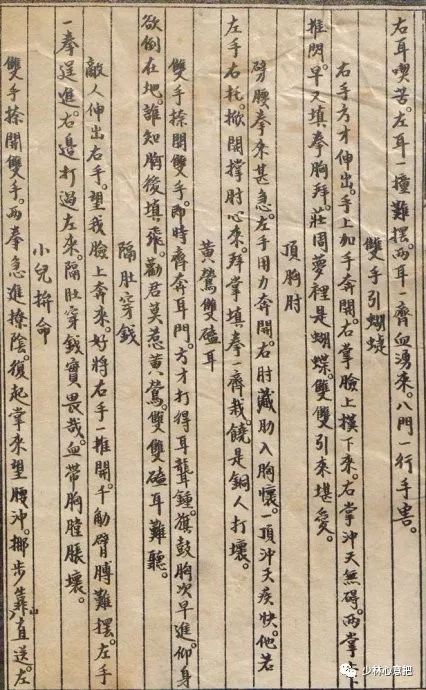 右耳喫苦。左耳一撞難擺。兩耳一齊血湧來。八門一行手害。
雙手引蝴蝶
右手方才伸出。手上加手奔開。右掌臉上橫下來。右掌沖天無碍。兩掌上下
推開。早又填拳胸拜。莊周夢裡是蝴蝶。雙雙引來堪愛。
頂胸肘
劈腰拳來甚急。左手用力奔開。右肘藏肋入胸懷。頂沖天疾快。他若
左手右托。掀開撑肘心來。拜掌填拳一齊栽。饒是銅人打壞。
黃鶯雙磕耳
雙手撩開雙手。即時齊奔耳門。方才打得耳聾鍾。旗鼓胸次早進。仰身
欲倒在地。誰知胸後填張。勸君莫惹黃鶯。雙雙磕耳難聽。
隔肚穿錢
敵人伸出右手。望我臉上奔來。好將右手一推開。千觔臂膊難擺。左手
一拳逞進。右邊打過左來。隔肚穿錢實畏哉。血帶胸膛脹壞。
小兒拚命
雙手撩開雙手。兩拳急進撩陰。復起掌來望腰沖。挪步靠山直送。左
少林心意把